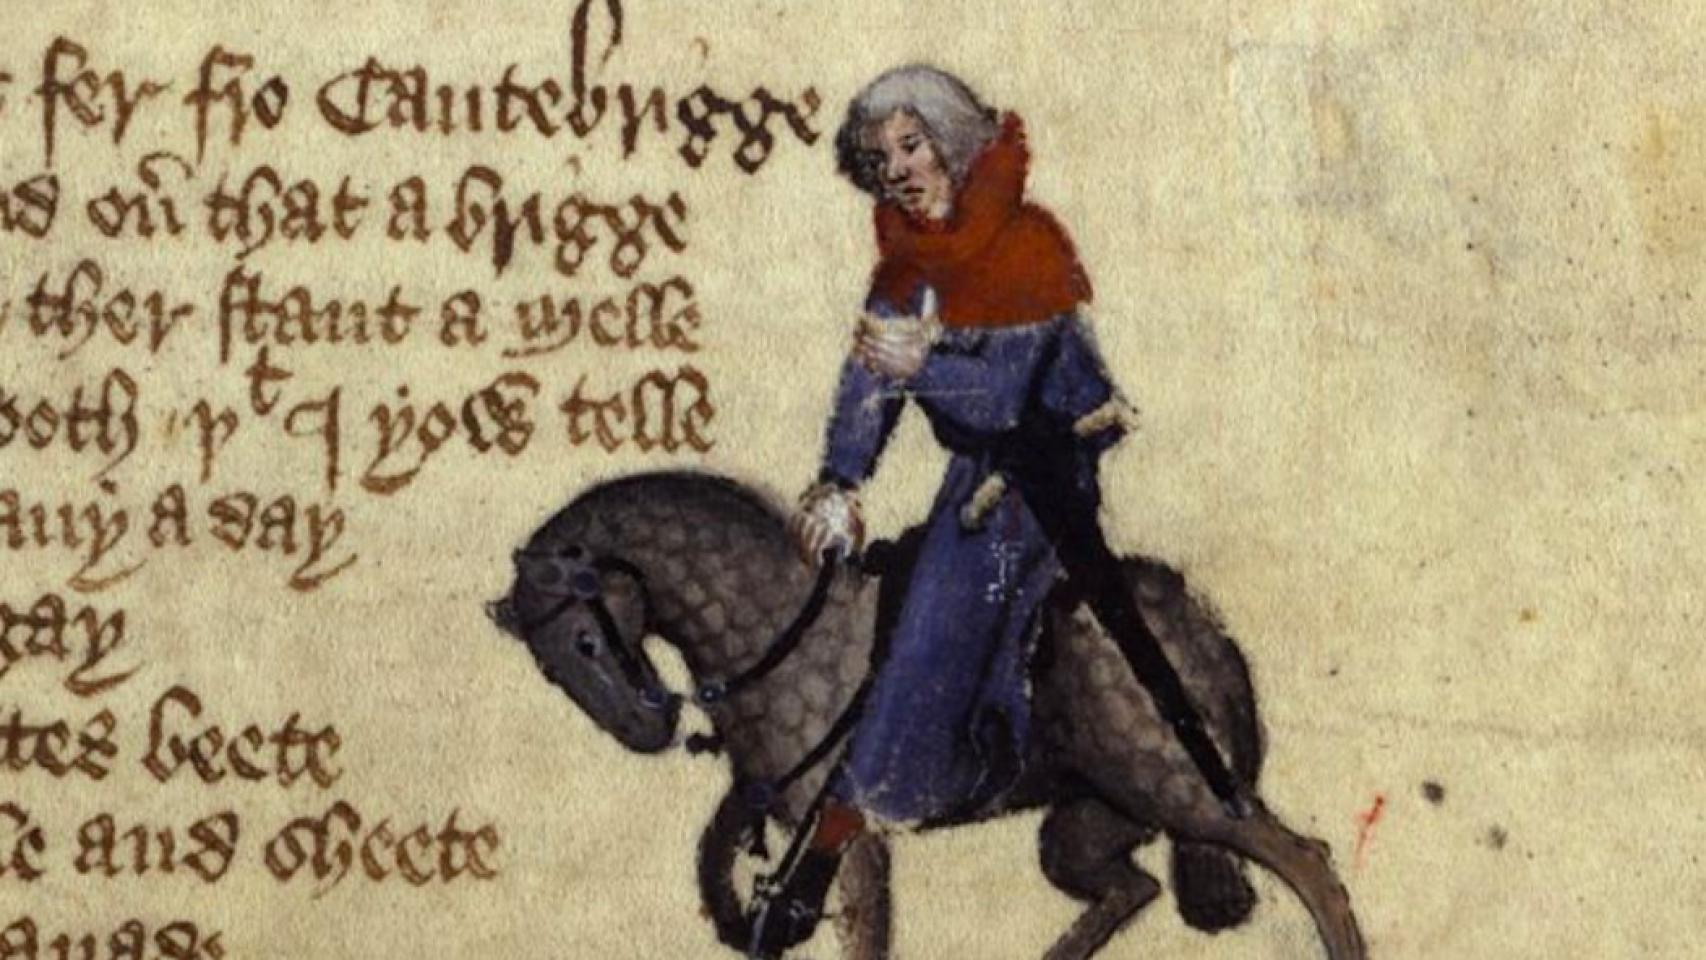 fer fro Cantebrigge
on that a brigge
ther stant a melle
sooth þt I yow telle
many a day
gay
nettes beete
and sheete